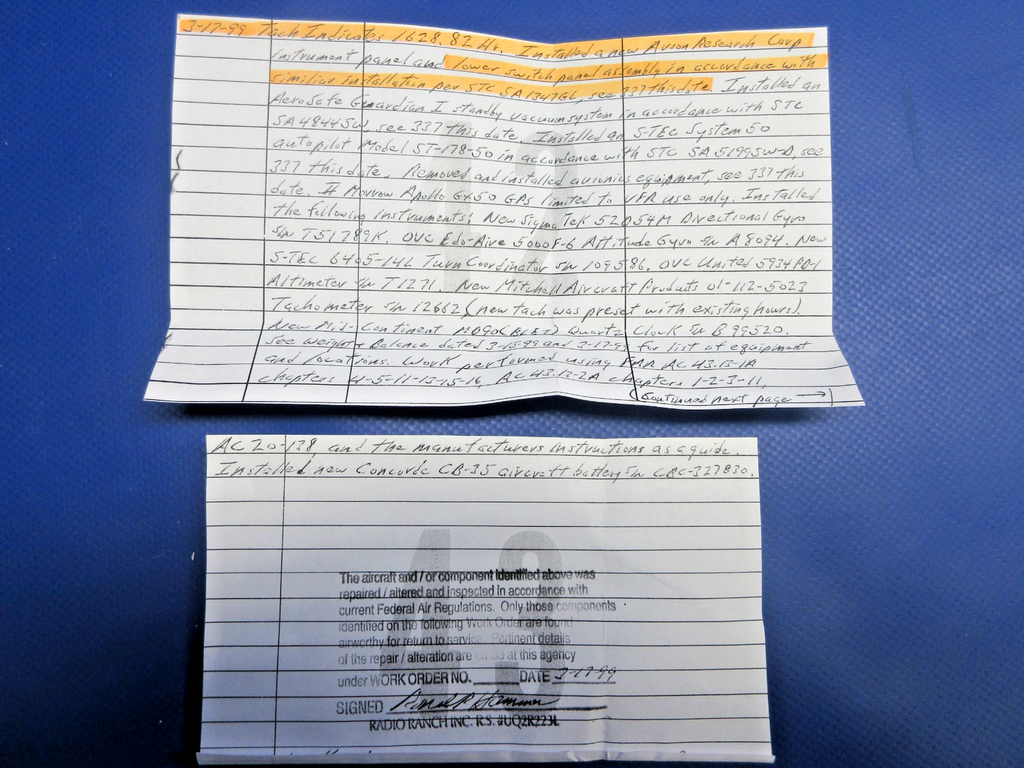 3-17-99 Tach Indicates 1628.82 Hr. Installed a new Avion Research Corp
instrument panel and lower switch panel assembly in accordance with
similiar installation per STC SA1347GL, see 337 this date. Installed an
AeroSafe Guardian I standby vacuum system in accordance with STC
SA4844SW, see 337 this date. Installed an S-TEC System 50
autopilot Model ST-178-50 in accordance with STC SA5199SW-D, see
337 this date. Removed and installed avionics equipment, see 337 this
date. II Morrow Apollo GX50 GPS limited to VFR use only. Installed
the following instruments: New SigmaTek 52D54M Directional Gyro
s/n T51789K. OVC Edo-Aire 5000F-6 Attitude Gyro s/n A8094. New
S-TEC 6405-14L Turn Coordinator s/n 109586. OVC United 5934PD-1
Altimeter s/n T1271. New Mitchell Aircraft Products 01-112-5023
Tachometer s/n 12662 (new tach was preset with existing hours).
New Mid-Continent Quartz Clock s/n B99520.
See weight + Balance dated 3-15-99 and 3-17-99 for list of equipment
and locations. Work performed using FAA AC43.13-1A
chapters 4-5-11-13-15-16, AC43.13-2A chapters 1-2-3-11,
(Continued next page →)
AC20-138, and the manufacturers instructions as a guide.
Installed new Concorde CB-35 aircraft battery s/n CBC-327830.
43
The aircraft and / or component identified above was
repaired / altered and inspected in accordance with
current Federal Air Regulations. Only those components
identified on the following Work Order are found
airworthy for return to service. Pertinent details
of the repair / alteration are on file at this agency
under WORK ORDER NO. DATE 3-17-99
SIGNED
RADIO RANCH INC. R.S. #UQ2R223L